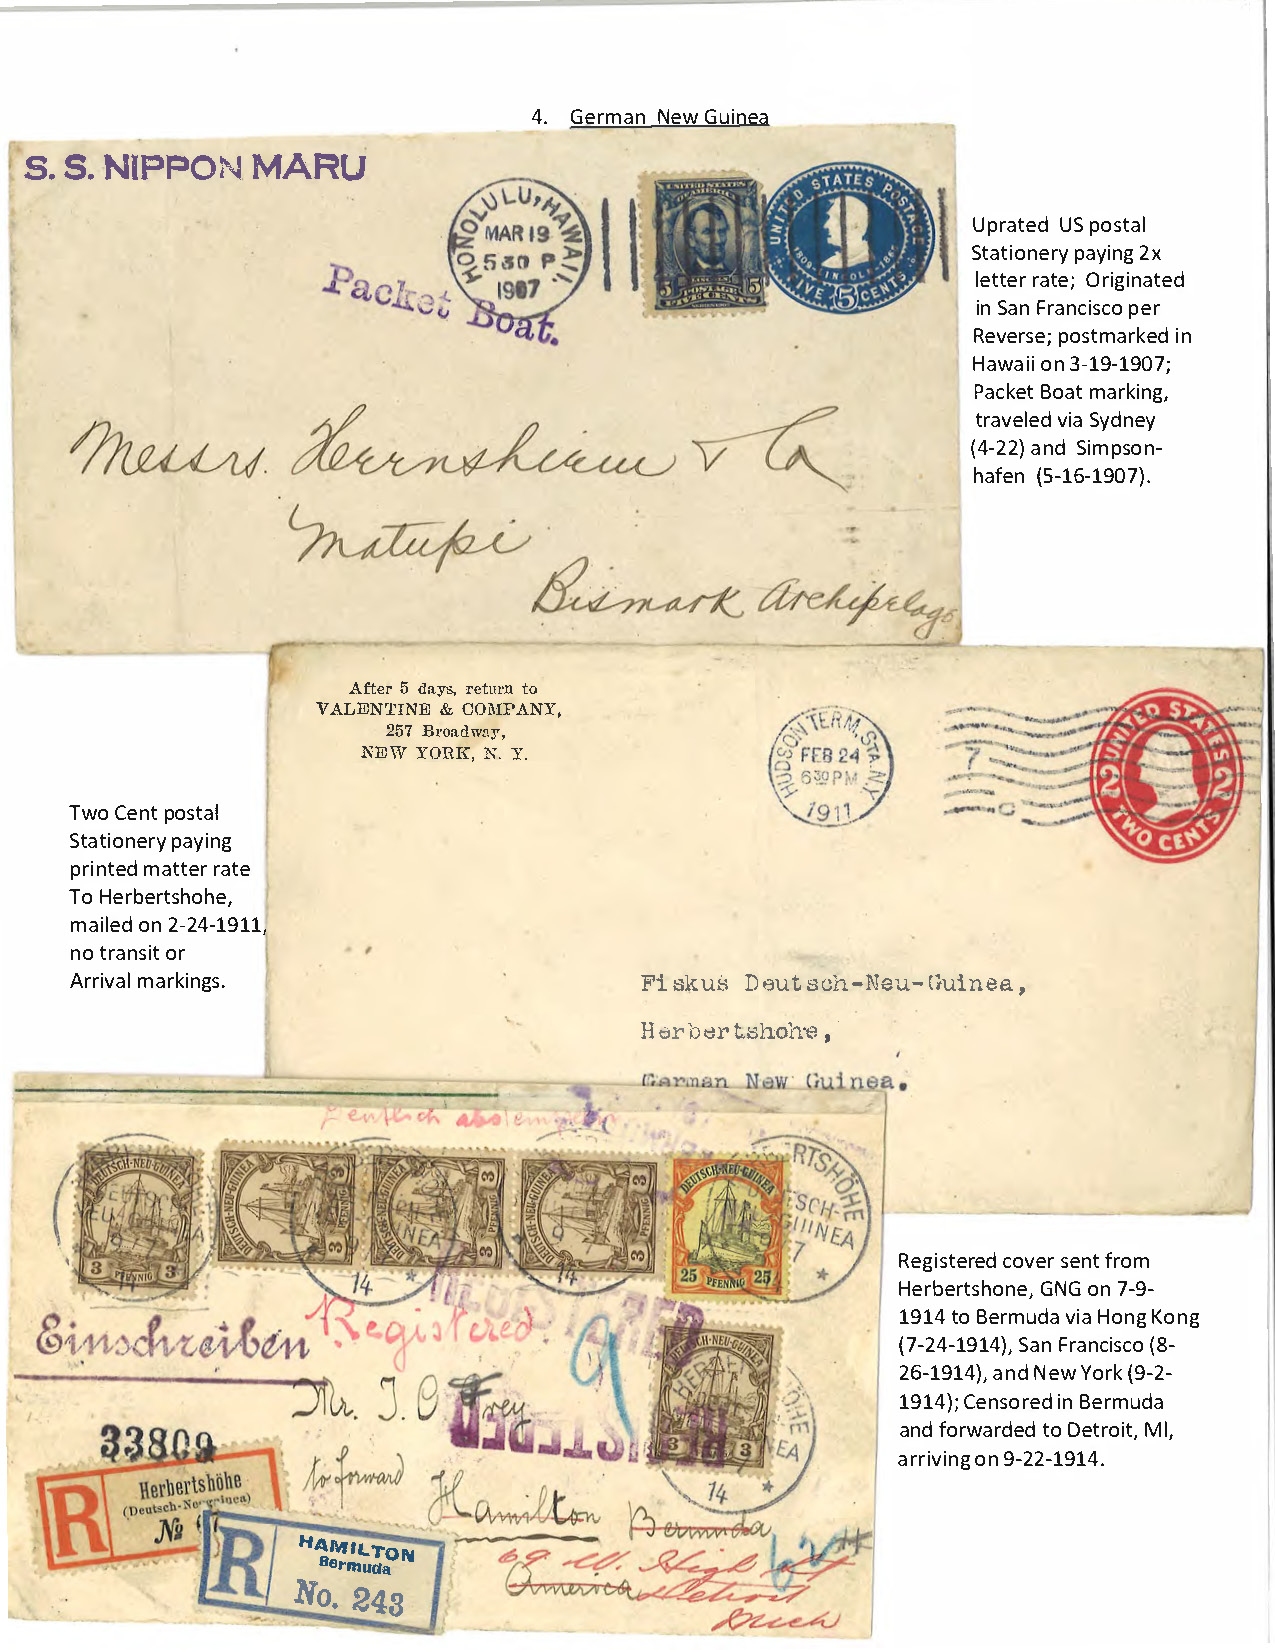 4. German New Guinea
S. S. NIPPON MARU
HONOLULU, HAWAII.
MAR 19
5 30 P
1907
Packet Boat.
UNITED STATES
OF AMERICA
5 POSTAGE 5
FIVE CENTS
UNITED STATES POSTAGE
1809-LINCOLN-1865
FIVE 5 CENTS
Messrs. Herrnshiem & Co
Matupi
Bismark Archipelago
Uprated US postal
Stationery paying 2x
letter rate; Originated
in San Francisco per
Reverse; postmarked in
Hawaii on 3-19-1907;
Packet Boat marking,
traveled via Sydney
(4-22) and Simpson-
hafen (5-16-1907).
After 5 days, return to
VALENTINE & COMPANY,
257 Broadway,
NEW YORK, N. Y.
HUDSON TERM. STA. N.Y.
FEB 24
6 30 PM
1911
7
C
UNITED STATES
2 2
TWO CENTS
Fiskus Deutsch-Neu-Guinea,
Herbertshohe,
German New Guinea.
Two Cent postal
Stationery paying
printed matter rate
To Herbertshohe,
mailed on 2-24-1911,
no transit or
Arrival markings.
Deutlich
DEUTSCH-NEU-GUINEA
3 PFENNIG 3
DEUTSCH-NEU-GUINEA
3 PFENNIG 3
DEUTSCH-NEU-GUINEA
3 PFENNIG 3
DEUTSCH-NEU-GUINEA
3 PFENNIG 3
DEUTSCH-NEU-GUINEA
25 PFENNIG 25
HERBERTSHÖHE
DEUTSCH-
NEU-GUINEA
9 7
14
Einschreiben
Registered.
REGISTERED
9
DEUTSCH-NEU-GUINEA
3 3
14
Mr. J. O Frey
REGISTERED
to forward
Hamilton
Bermuda
America
69 W. High St
Detroit
Mich
33809
R
Herbertshöhe
(Deutsch-Neuguinea)
No
R
HAMILTON
Bermuda
No. 243
Registered cover sent from
Herbertshone, GNG on 7-9-
1914 to Bermuda via Hong Kong
(7-24-1914), San Francisco (8-
26-1914), and New York (9-2-
1914); Censored in Bermuda
and forwarded to Detroit, MI,
arriving on 9-22-1914.